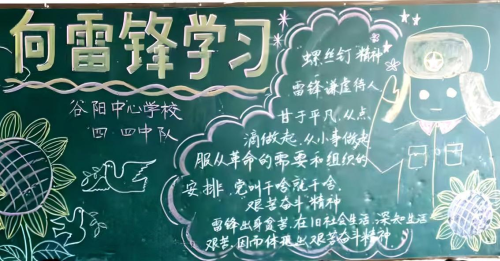 向雷锋学习
谷阳中心学校
四.四中队
"螺丝钉"精神
雷锋谦虚待人
甘于平凡.从点
滴做起.从小事做起
服从革命的需要和组织的
安排.党叫干啥就干啥.
艰苦奋斗精神
雷锋出身贫苦.在旧社会生活.深知生活
艰苦.因而体现出艰苦奋斗精神